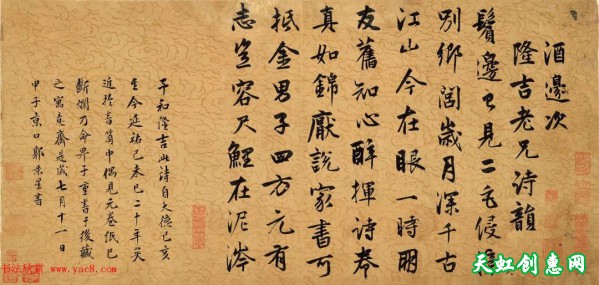 酒邊次
隆吉老兄詩韻
鬢邊已見二毛侵
別鄉闊歲月深千古
江山今在眼一時朋
友舊知心醉揮詩卷
真如錦厭說家書可
抵金男子四方元有
志豈容尺鯉在泥涔
予和隆吉此詩自大德己亥
至今延祐己未已二十年矣
近於書笥中偶見元卷紙已
斷爛乃命界子重書于後藏
之寓意齋是歲七月十一日
甲子京口郭景星書
书法欣赏
www.yac8.com
天虹创惠网